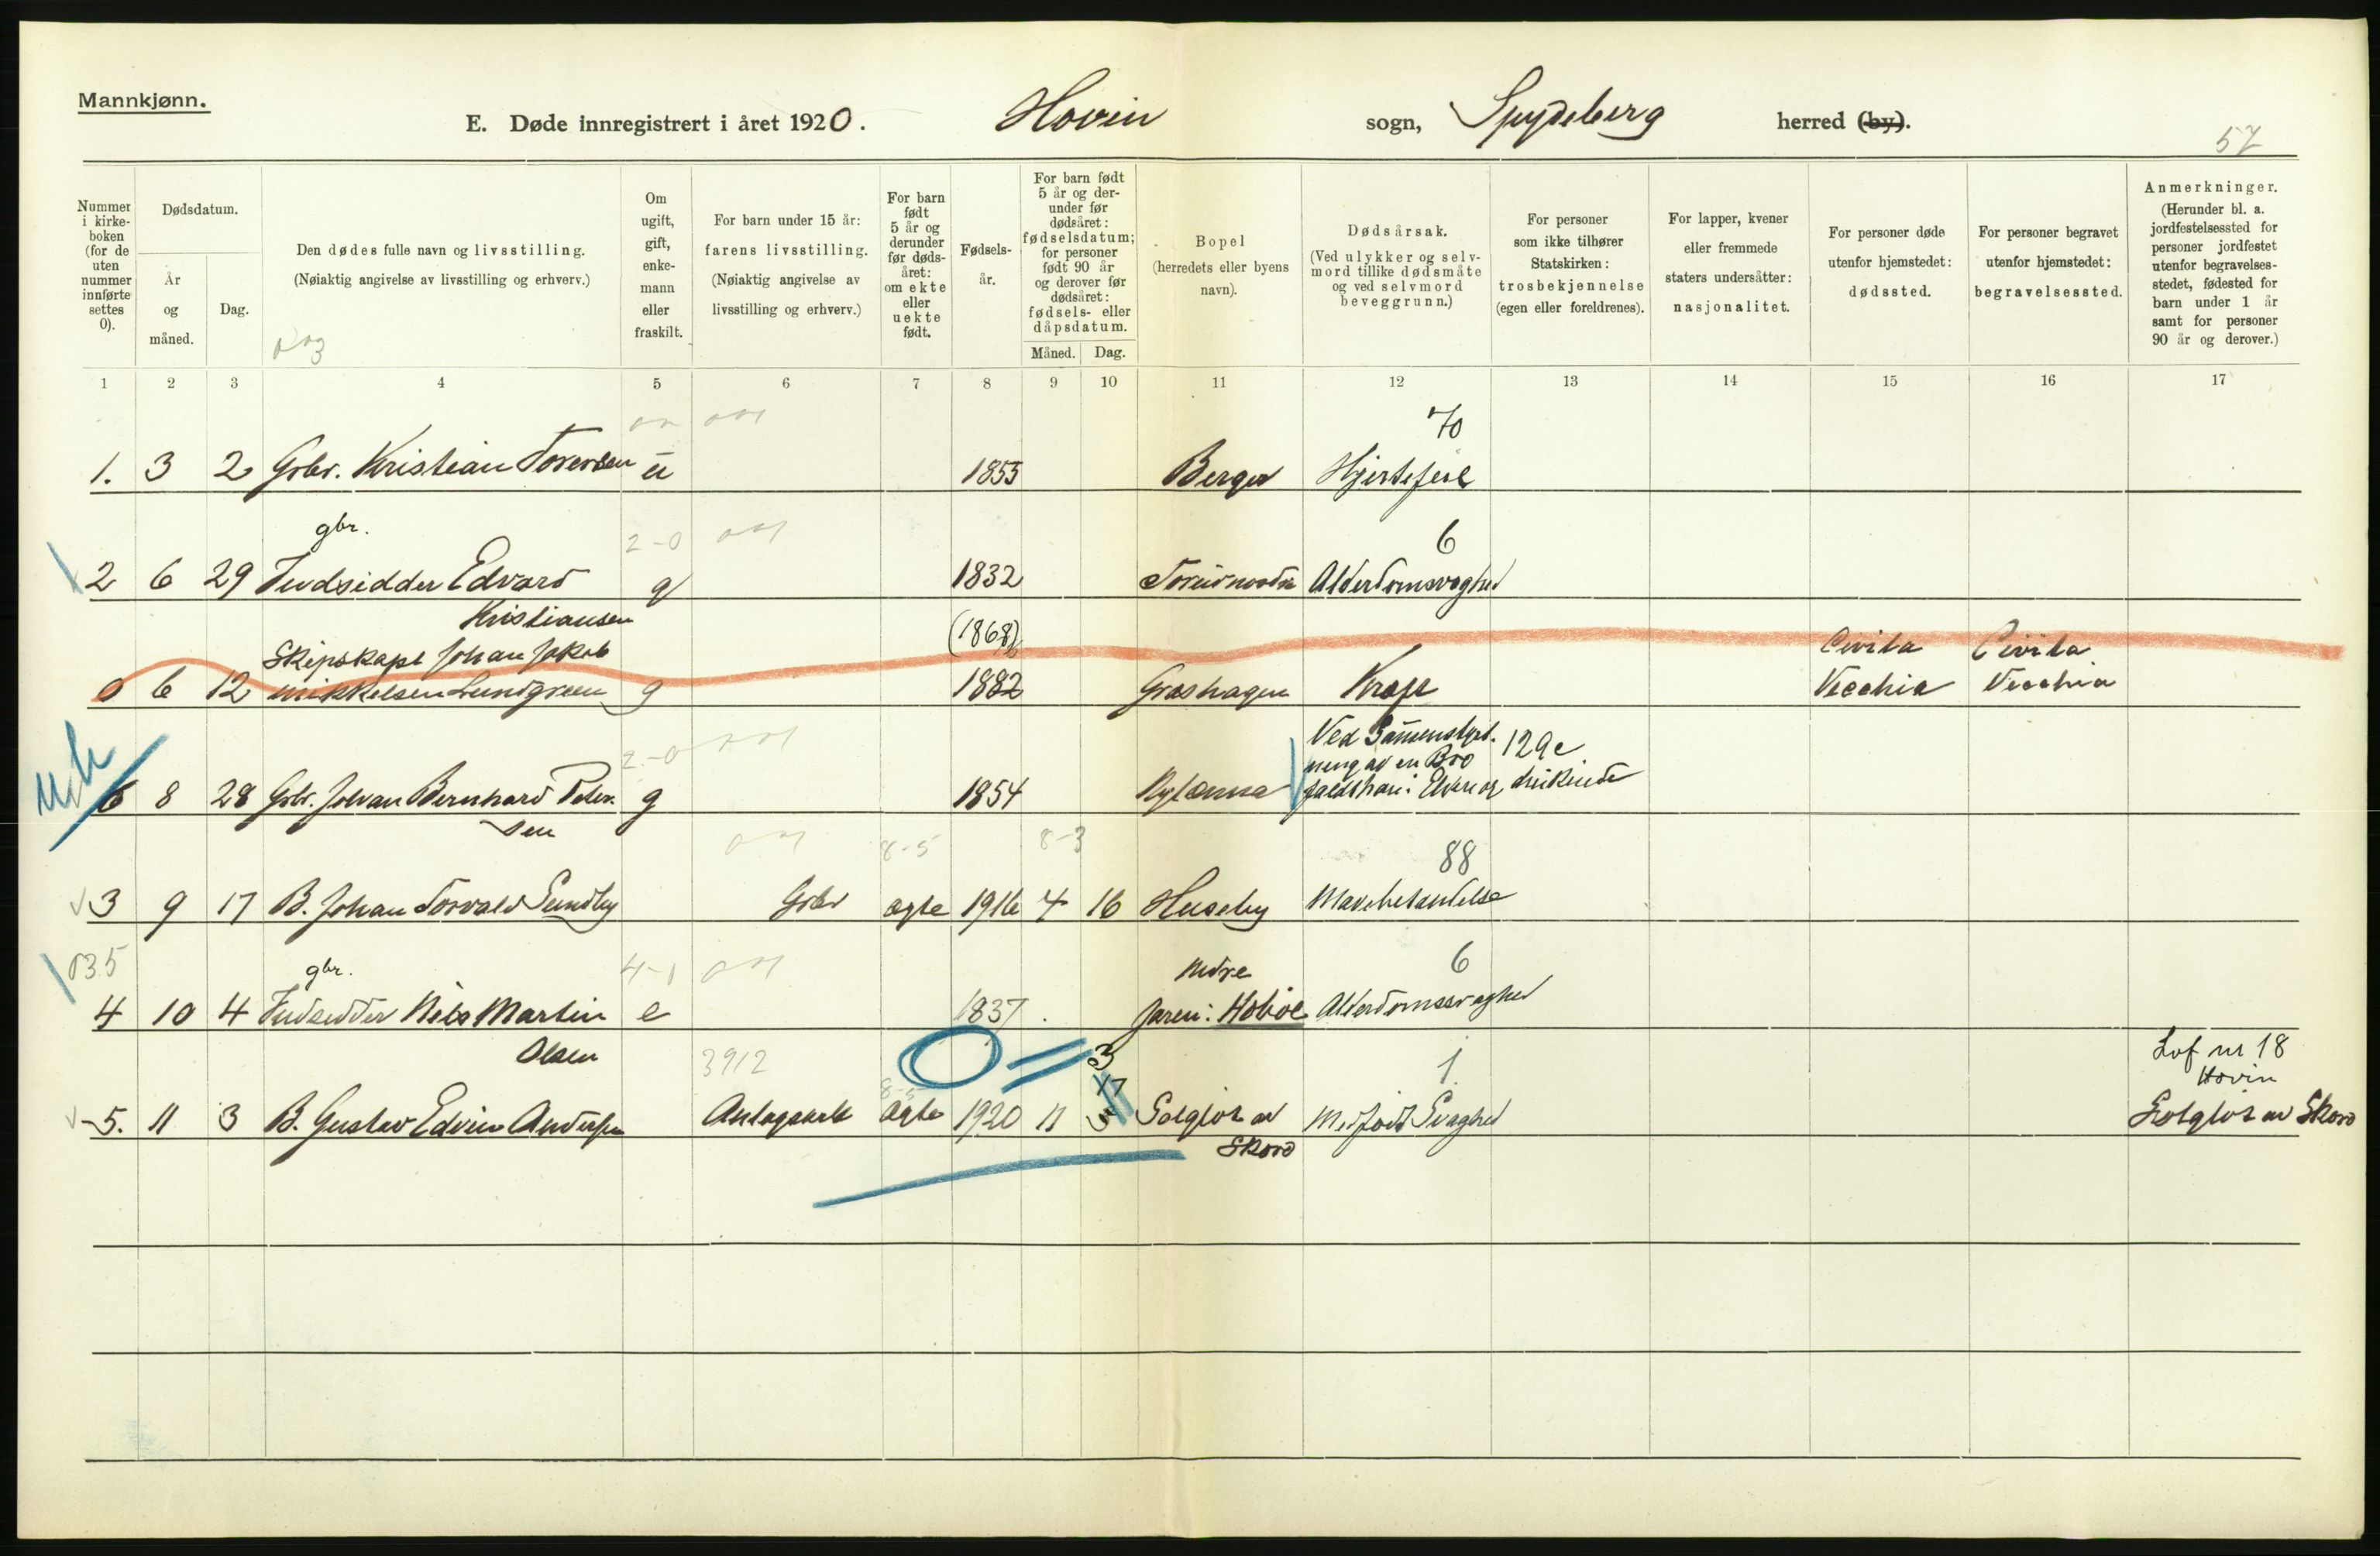 Mannkjønn.
E. Døde innregistrert i året 1920. Hovin sogn, Spydeberg herred (by).
57
Nummer i kirkeboken (for de uten nummer innførte settes 0).
Dødsdatum.
År og måned.
Dag.
Den dødes fulle navn og livsstilling.
(Nøiaktig angivelse av livsstilling og erhverv.)
Om ugift, gift, enkemann eller fraskilt.
For barn under 15 år: farens livsstilling.
(Nøiaktig angivelse av livsstilling og erhverv.)
For barn født 5 år og derunder før dødsåret: om ekte eller uekte født.
Fødselsår.
For barn født 5 år og derunder før dødsåret: fødselsdatum; for personer født 90 år og derover før dødsåret: fødsels- eller dåpsdatum.
Måned. Dag.
Bopel
(herredets eller byens navn).
Dødsårsak.
(Ved ulykker og selvmord tillike dødsmåte og ved selvmord beveggrunn.)
For personer som ikke tilhører Statskirken: trosbekjennelse (egen eller foreldrenes).
For lapper, kvener eller fremmede staters undersåtter: nasjonalitet.
For personer døde utenfor hjemstedet: dødssted.
For personer begravet utenfor hjemstedet: begravelsessted.
Anmerkninger.
(Herunder bl. a. jordfestelsessted for personer jordfestet utenfor begravelsesstedet, fødested for barn under 1 år samt for personer 90 år og derover.)
1 2 3 4 5 6 7 8 9 10 11 12 13 14 15 16 17
70
1. 3 2 Grbr. Kristian Toversen u 1855 Berger Hjertefeil
gbr. 2-0 6
2 6 29 Indsidder Edvard g 1832 Alderdomsvaghed
Kristiansen
(1868)
Skipskapt Johan Jakob Civita Civita
0 6 12 Mikkelsen Lundgreen g 1882 Græshagen Kræft Vecchia Vecchia
2-0 Ved Sammenstyrt-
ning av en Bro 129c
6 8 28 Grbr. Johan Bernhard Peter- g 1854 faldt han i Elven og druknede
sen
8-5 8-3 88
3 9 17 B. Johan Torvald Sundby Grbr ægte 1916 4 16 Huseby Mavebetændelse
035 gbr. 4-1 nedre 6
4 10 4 Indsidder Nils Martin e 1837 Jaren i Hobøl Alderdomssvaghed
Olsen 3912 0 = 3 1. Lof nr 18
17 Hovin
5. 11 3 B. Gustav Edvin Andersen Anlægsarb ægte 1920 11 3 Solgløt av Medfødt Svaghed Solgløt av Skovd
Skovd